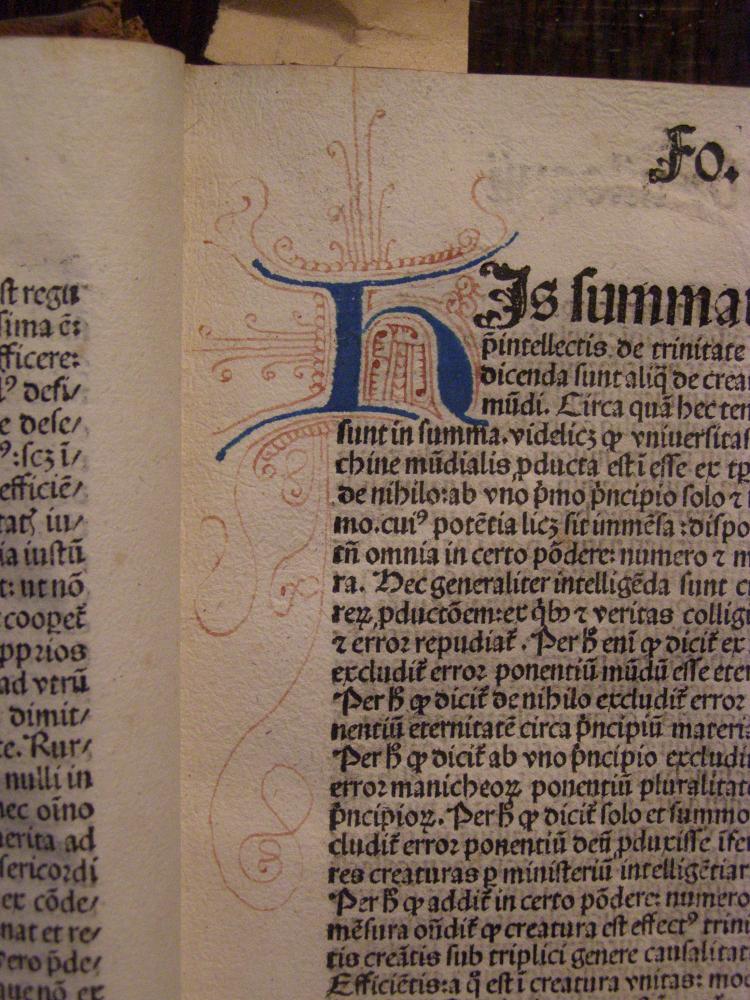 st regu
sima ē:
fficere:
lꝰ defi/
e dese/
ꝰ:scꝫ ī/
efficiē/
ia iustū
t: ut nō
coopet̄
pprios
ad vtrū
dimit/
te. Rur/
nulli in
nec oīno
merita ad
sericordi
et cōde/
nat et re/
vero ꝓde/
que nō et
Fo.
HIs summa
p̄intellectis de trinitate
dicenda sunt aliq̄ de crea
mūdi. Circa quā hec ten
sunt in summa. videlicꝫ ꝙ vniuersitas
chine mūdialis ꝓducta est ī esse ex tp̄
de nihilo: ab vno p̄mo p̄ncipio solo ⁊
mo. cuiꝰ potētia licꝫ sit immēsa: dispo
tn̄ omnia in certo pōdere: numero ⁊ m
ra. Hec generaliter intelligēda sunt c
reꝝ ꝓductōem: ex q̄bꝰ ⁊ veritas collig
⁊ error repudiat̄. Per h̄ enī ꝙ dicit̄ ex
excludit̄ error ponentiū mūdū esse eter
Per h̄ ꝙ dicit̄ de nihilo excludit̄ error
nentiū eternitatē circa p̄ncipiū materia
Per h̄ ꝙ dicit̄ ab vno p̄ncipio excludi
error manicheoꝝ ponentiū pluralitate
p̄ncipioꝝ. Per h̄ ꝙ dicit̄ solo et summo
cludit̄ error ponentiū deū ꝓduxisse īfe
res creaturas ꝑ ministeriū intelligētiar
Per h̄ ꝙ addit̄ in certo pōdere: numero
mēsura oñdit̄ ꝙ creatura est effectꝰ trini
tis creātis sub triplici genere causalitat
Efficiētis: a q̄ est ī creatura vnitas: mo